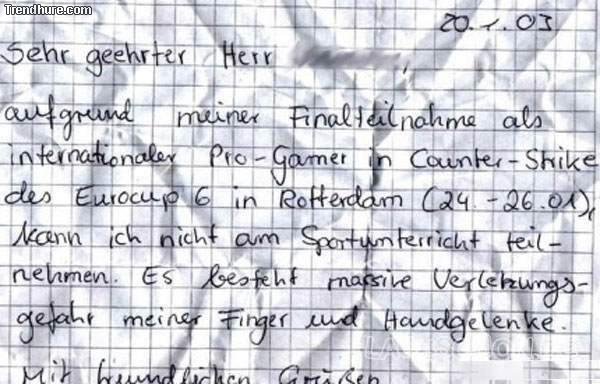 Trendhure.com
20.1.03
Sehr geehrter Herr
aufgrund meiner Finalteilnahme als
internationaler Pro-Gamer in Counter-Strike
des Eurocup 6 in Rotterdam (24.-26.01),
kann ich nicht am Sportunterricht teil-
nehmen. Es besteht massive Verletzungs-
gefahr meiner Finger und Handgelenke.
Mit freundlichen Grüßen